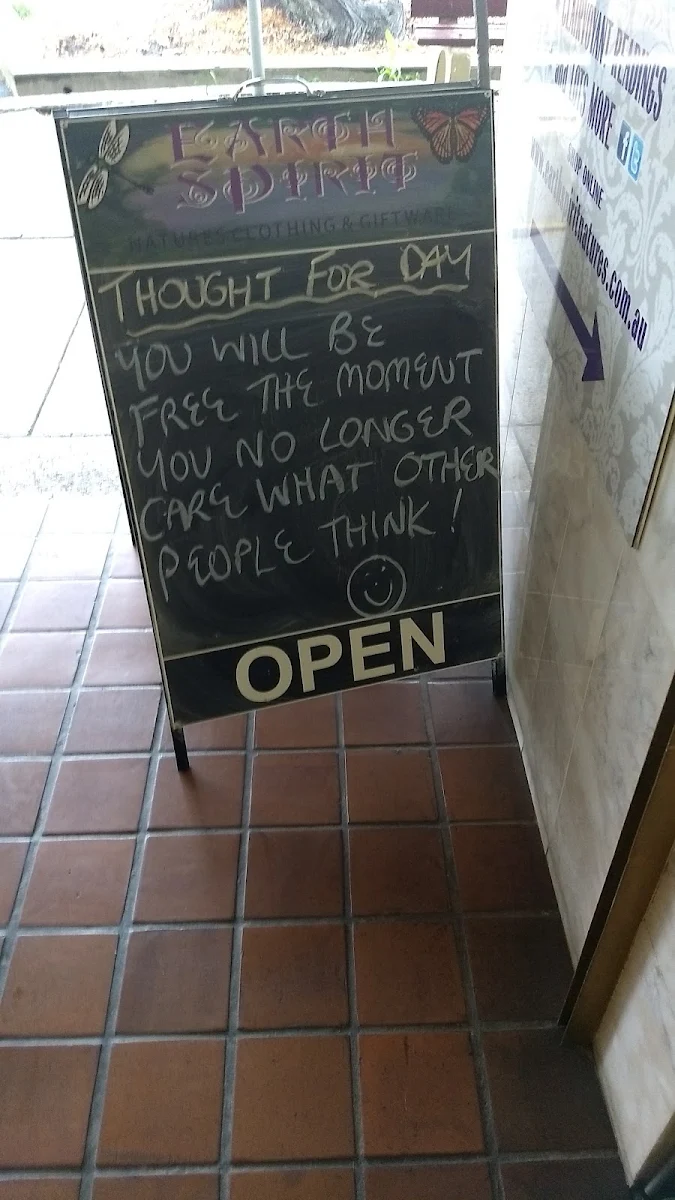 EARTH
SPIRIT
NATURES CLOTHING & GIFTWARE
THOUGHT FOR DAY
YOU WILL BE
FREE THE MOMENT
YOU NO LONGER
CARE WHAT OTHER
PEOPLE THINK!
OPEN
READINGS
MORE
ONLINE